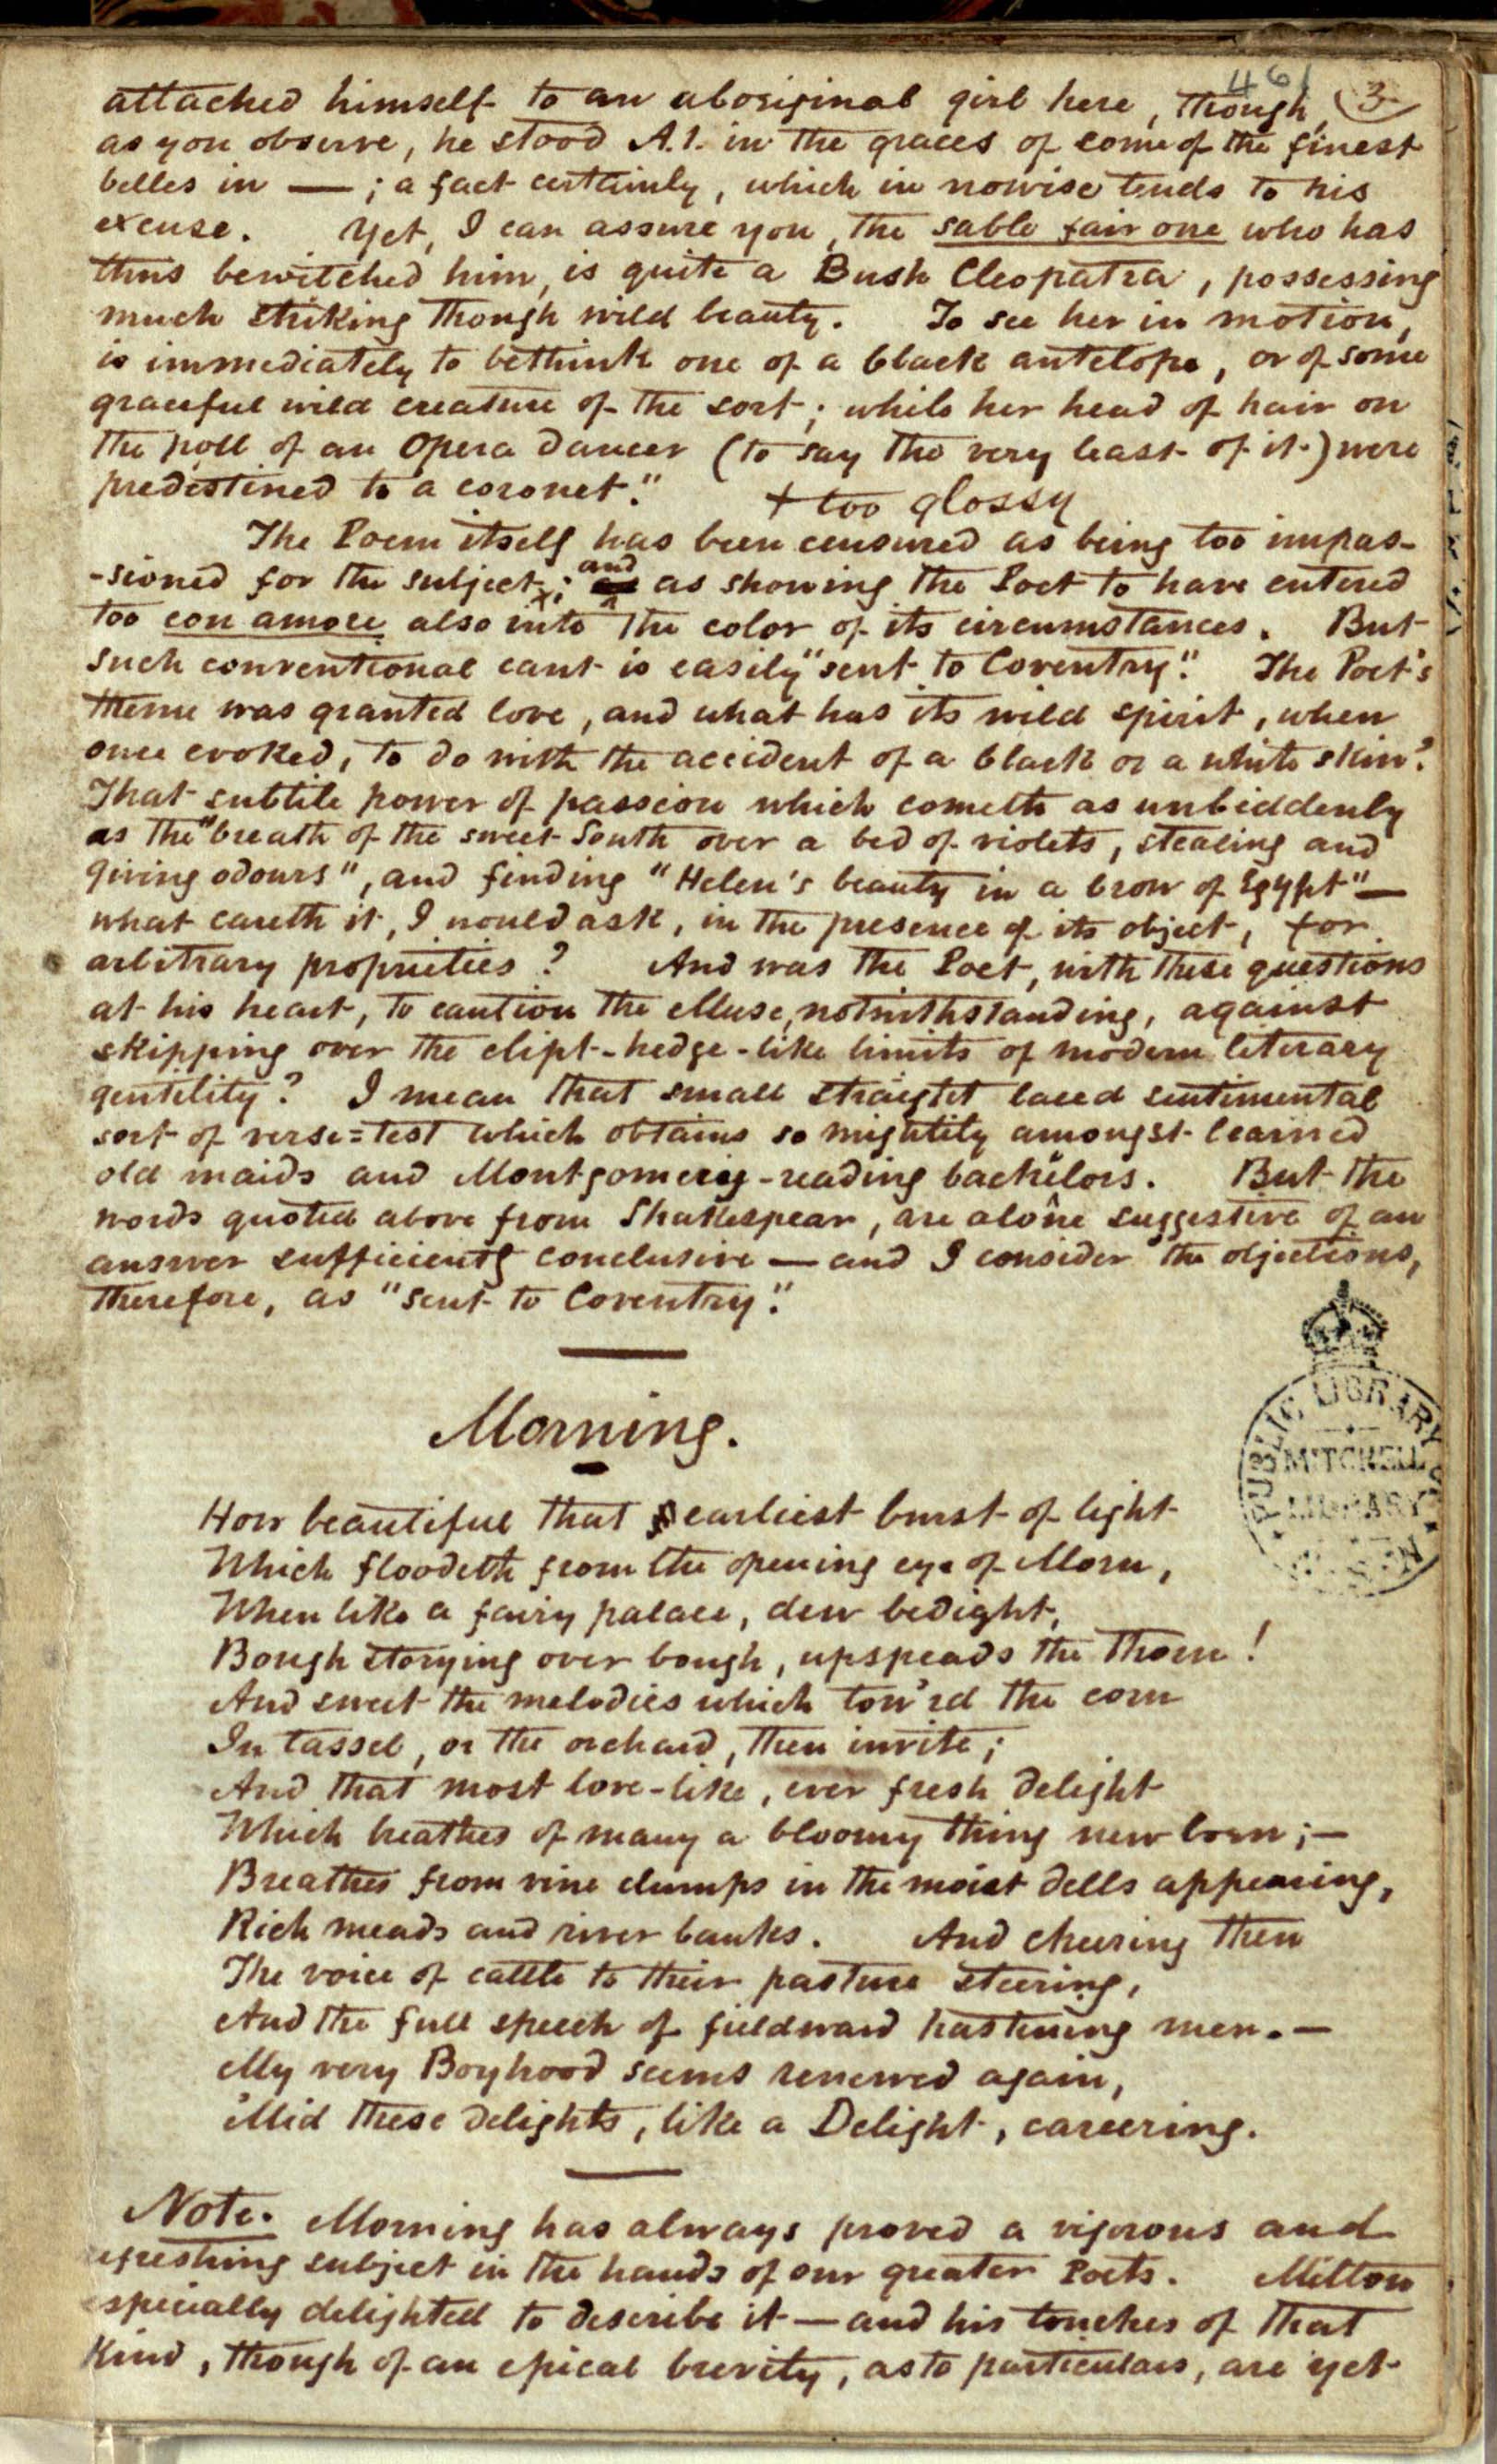 461
3
attached himself to an aboriginal girl here, though,
as you observe, he stood A.1. in the graces of some of the finest
belles in — ; a fact certainly, which in nowise tends to his
excuse. Yet, I can assure you, the sable fair one who has
thus bewitched him, is quite a Bush Cleopatra, possessing
much striking though wild beauty. To see her in motion,
is immediately to bethink one of a black antelope, or of some
graceful wild creature of the sort; while her head of hair on
the poll of an Opera dancer (to say the very least of it) were
predestined to a coronet."
+ too glossy
The Poem itself has been censured as being too impas-
-sioned for the subject x; and as showing the Poet to have entered
too con amore also into the color of its circumstances. But
such conventional cant is easily "sent to Coventry". The Poet's
theme was granted love, and what has its wild spirit, when
once evoked, to do with the accident of a black or a white skin?
That subtile power of passion which cometh as unbiddenly
as the "breath of the sweet South over a bed of violets, stealing and
giving odours", and finding "Helen's beauty in a brow of Egypt"—
what careth it, I would ask, in the presence of its object, for
arbitrary proprieties? And was the Poet, with these questions
at his heart, to caution the Muse, notwithstanding, against
skipping over the clipt-hedge-like limits of modern literary
gentility? I mean that small straight laced sentimental
sort of verse=test which obtains so mightily amongst learned
old maids and Montgomery-reading bachelors. But the
words quoted above from Shakespear, are alone suggestive of an
answer sufficiently conclusive — and I consider the objections,
therefore, as "sent to Coventry".
Morning.
How beautiful that earliest burst of light
Which floodeth from the opening eye of Morn,
When like a fairy palace, dew bedight,
Bough storying over bough, upspreads the thorn!
And sweet the melodies which tow'rd the corn
In tassel, or the orchard, then invite;
And that most love-like, ever fresh delight
Which breathes of many a bloomy thing new born;—
Breathes from vine clumps in the moist dells appearing,
Rich meads and river banks. And cheering then
The voice of cattle to their pasture steering,
And the full speech of fieldward hastening men.—
My very Boyhood seems renewed again,
'Mid these delights, like a Delight, careering.
Note. Morning has always proved a vigorous and
refreshing subject in the hands of our greater Poets. Milton
especially delighted to describe it — and his touches of that
kind, though of an epical brevity, as to particulars, are yet
PUBLIC LIBRARY
MITCHELL
LIBRARY